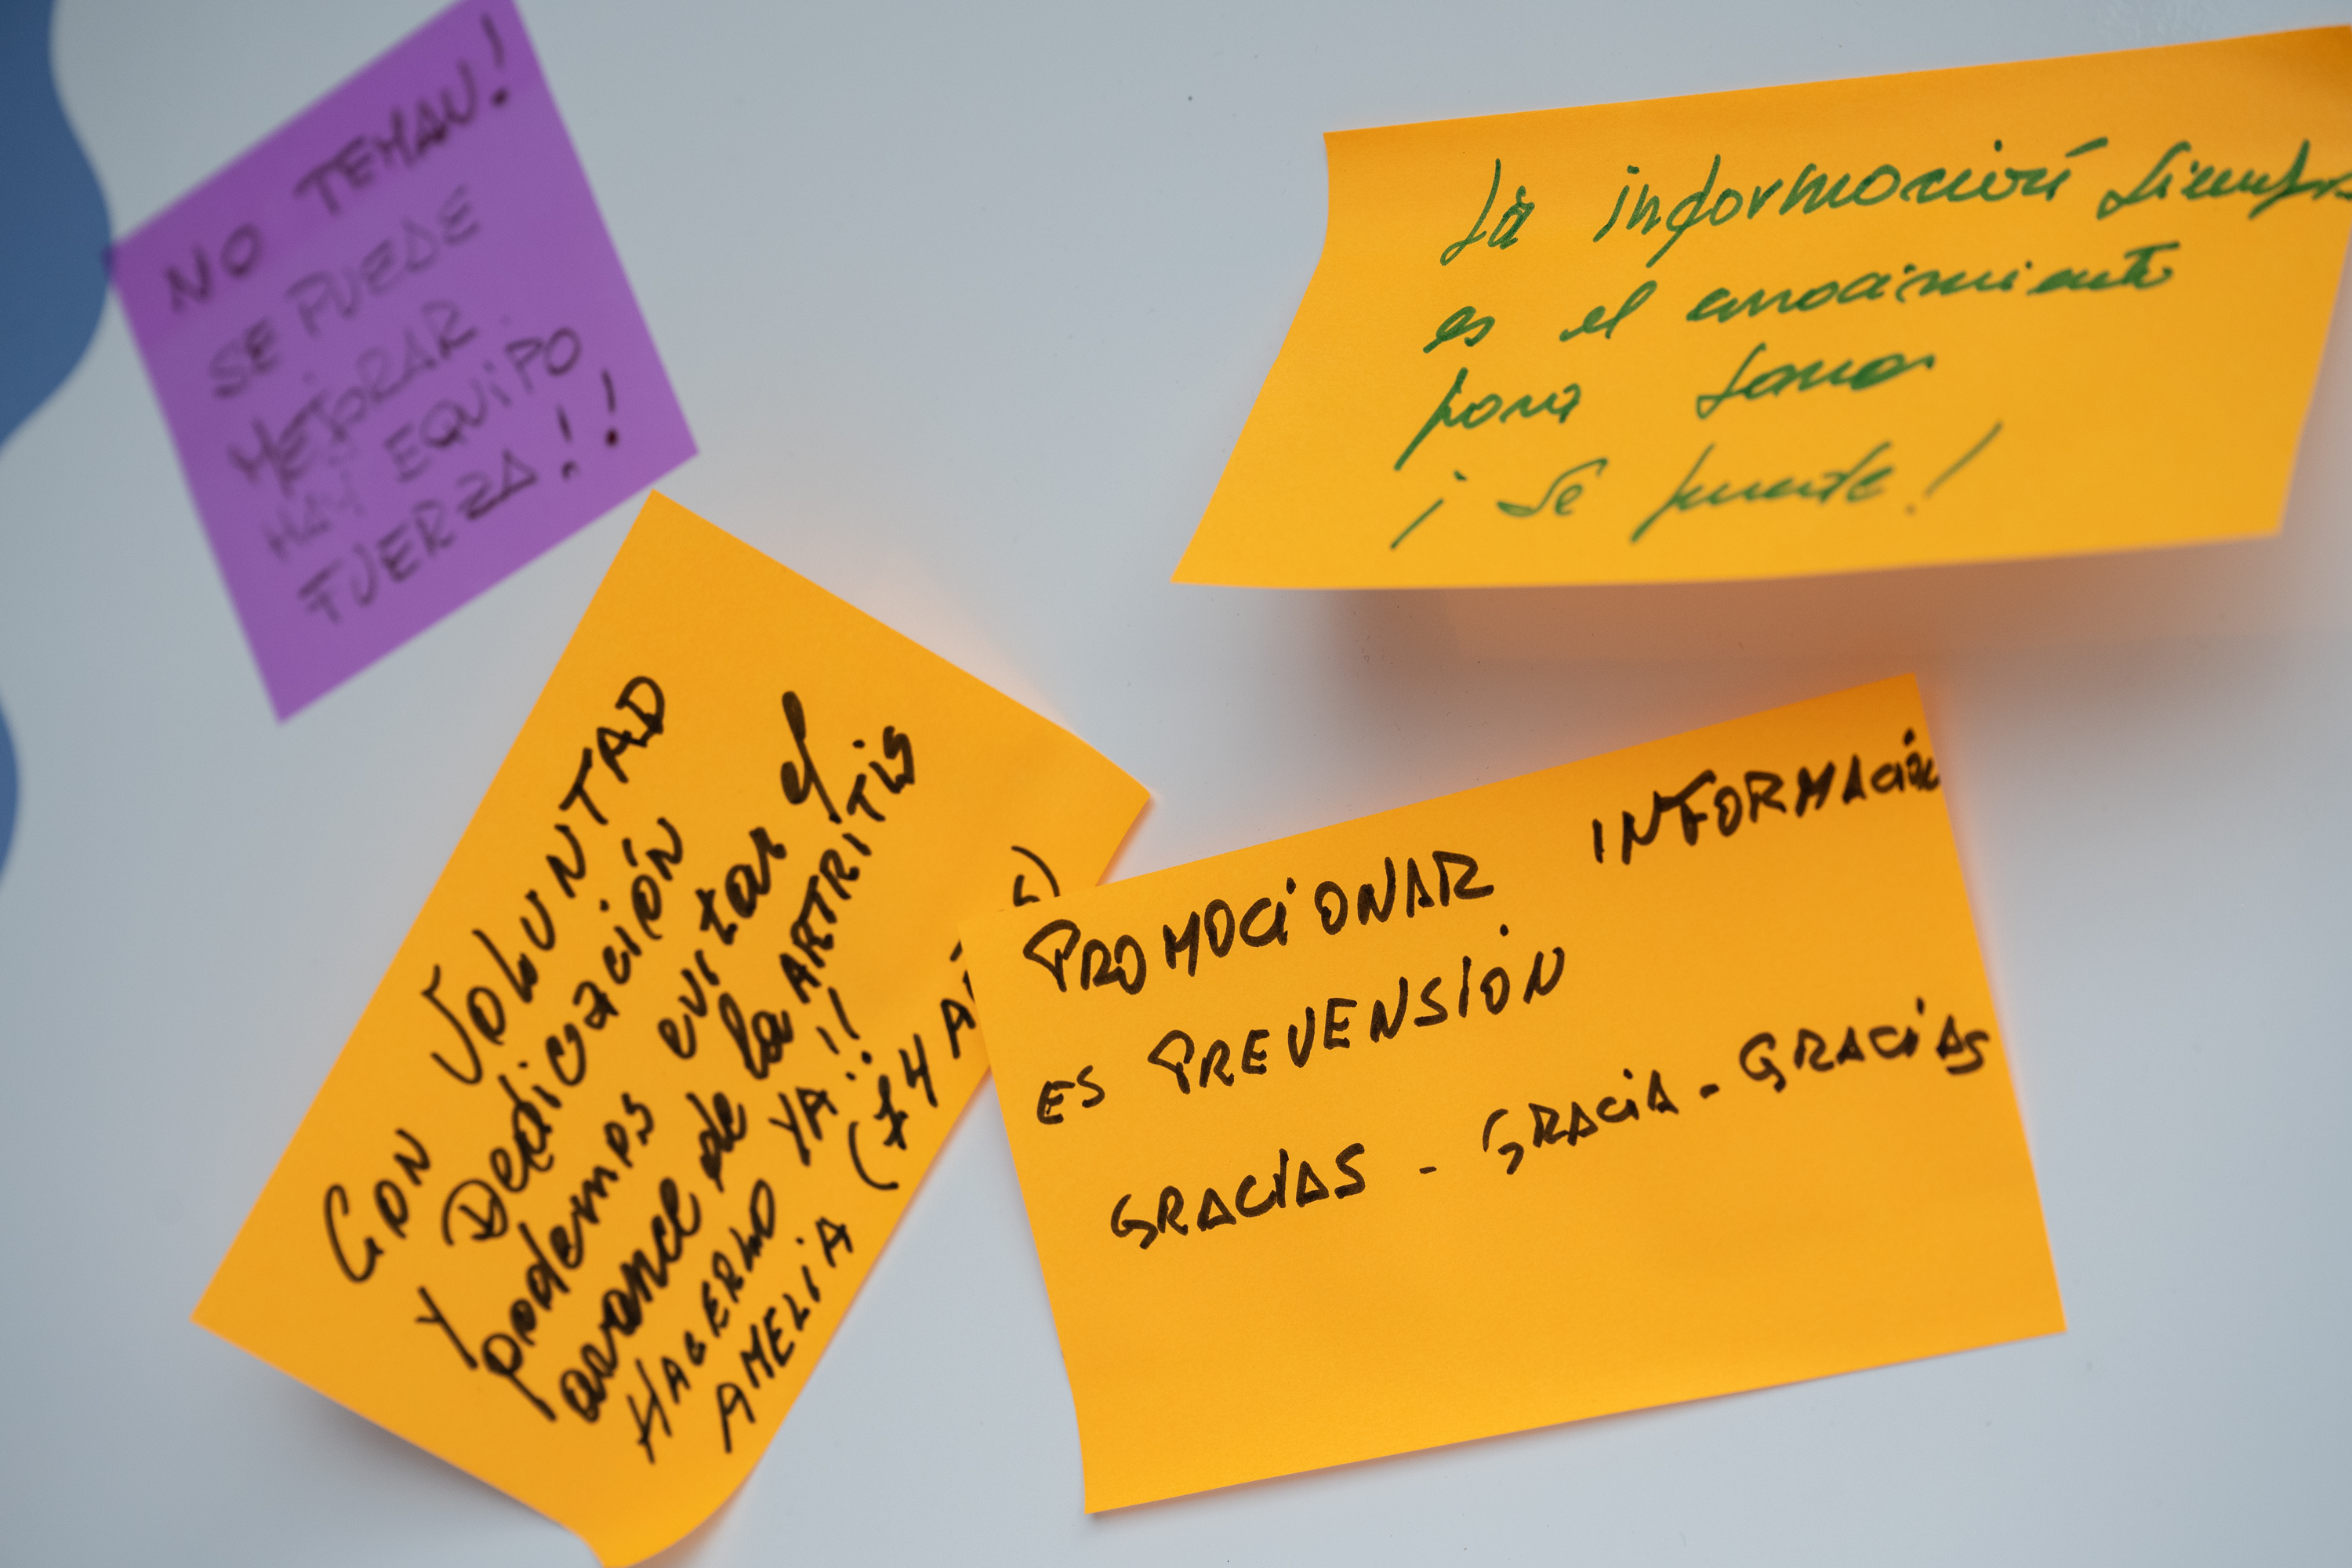 NO TEMAN!
SE PUEDE
MEJORAR
HAY EQUIPO
FUERZA!!
La información siempre
es el conocimiento
para sanar
¡Se puede!
CON VOLUNTAD
Y Dedicación
podemos evitar el
avance de la ARTRITIS
HACERLO YA!!
AMELIA (74 A
PROMOCIONAR INFORMACIÓN
ES PREVENSIÓN
GRACIAS - GRACIA - GRACIAS